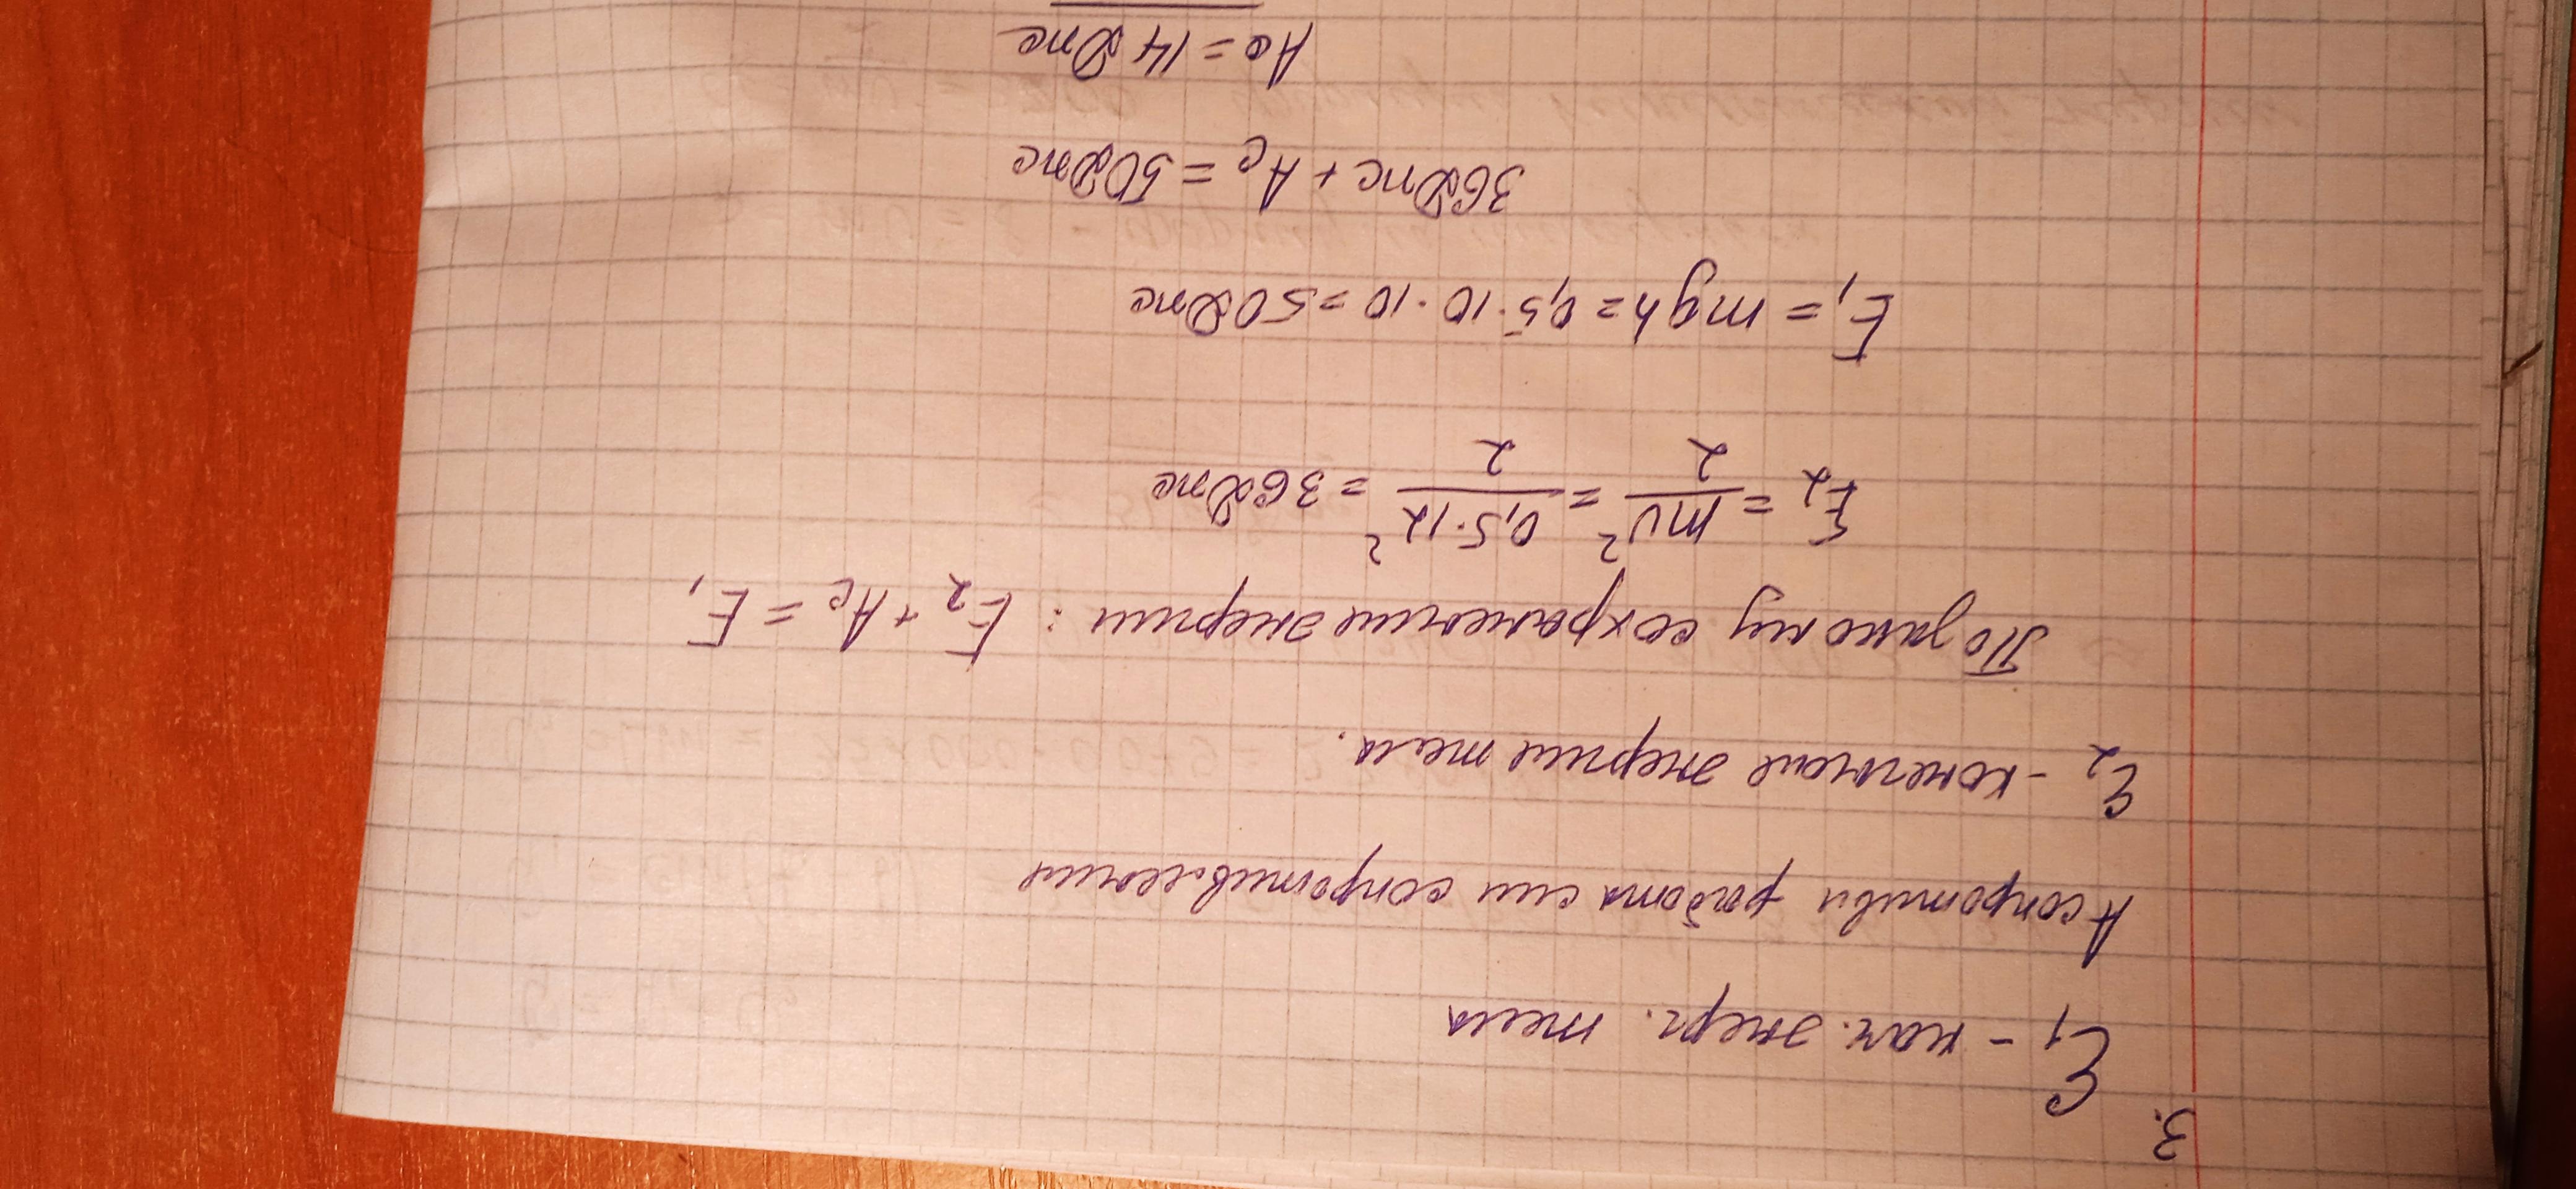 3.
E₁ - нач. энерг. тела
A сопротивл работа сил сопротивление
E₂ - конечная энергия тела.
По закону сохранение энергии: E₂ + Aс = E₁
E₂ = mv²/2 = 0,5·12²/2 = 36 Дж
E₁ = mgh = 0,5·10·10 = 50 Дж
36 Дж + Aс = 50 Дж
Aс = 14 Дж